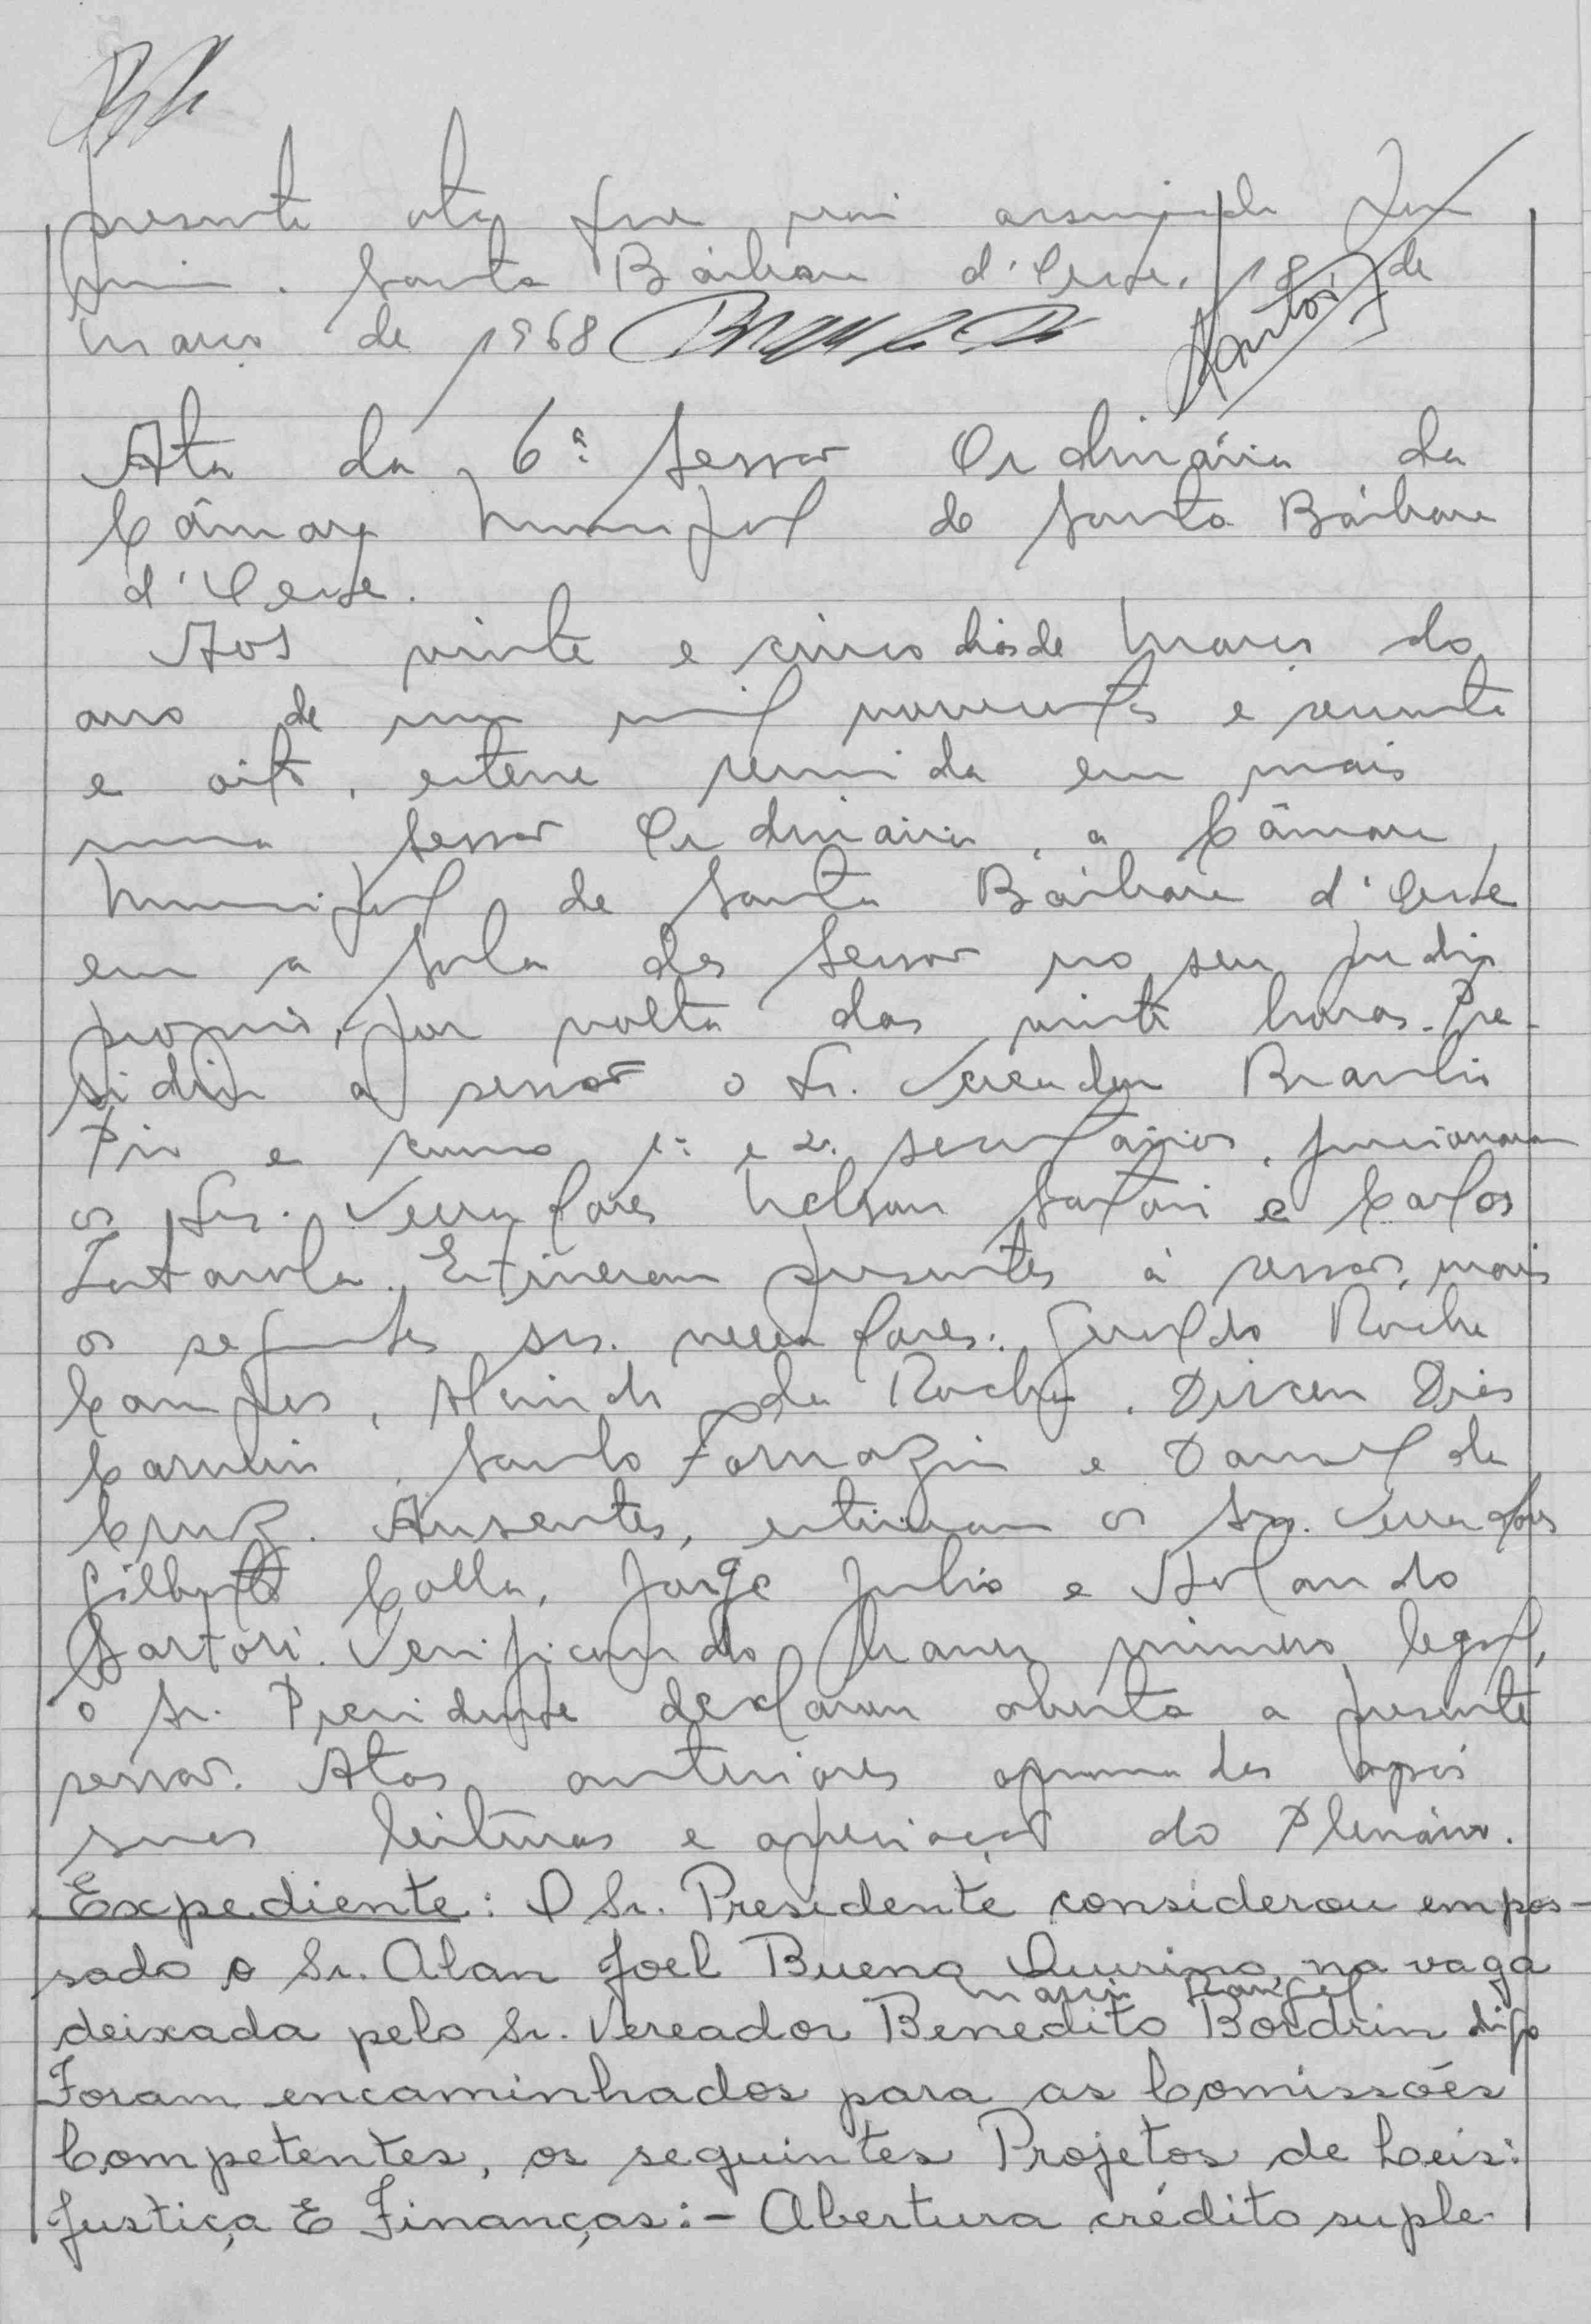 presente ata que vai assinada por
mim. Santa Bárbara d'Oeste, 18 de
março de 1968
Santos
Ata da 6ª Sessão Ordinária da
Câmara Municipal de Santa Bárbara
d'Oeste.
Aos vinte e cinco dias de março do
ano de um mil novecentos e sessenta
e oito, esteve reunida em mais
uma Sessão Ordinária, a Câmara
Municipal de Santa Bárbara d'Oeste
em a sala das Sessão no seu predio
proprio, por volta das vinte horas. Pre-
sidiu a sessão o Sr. Vereador Braulio
Pio e como 1º e 2º secretários, funcionaram
os Srs. Vereadores Nelson Sartori e Carlos
Estiveram presentes à sessão, mais
os seguintes srs. vereadores: Geraldo Rocha
Campos, Alcindo da Rocha, Dirceu Dias
Carneiro, Santo Fornazin e Daniel da
Cruz. Ausentes, estiveram os Srs. Vereadores
Gilberto Colla, Jorge Julio e Orlando
Sartori. Verificando haver número legal,
o Sr. Presidente declarou aberta a presente
sessão. Atas anteriores aprovadas após
suas leituras e apreciação do Plenário.
Expediente: O Sr. Presidente considerou empos-
sado o Sr. Alan Joel Bueno Quirino, na vaga
Mario Rangel
deixada pelo Sr. Vereador Benedito Bordrin digo
Foram encaminhados para as Comissões
Competentes, os seguintes Projetos de Leis:
Justiça E Finanças: - Abertura crédito suple-